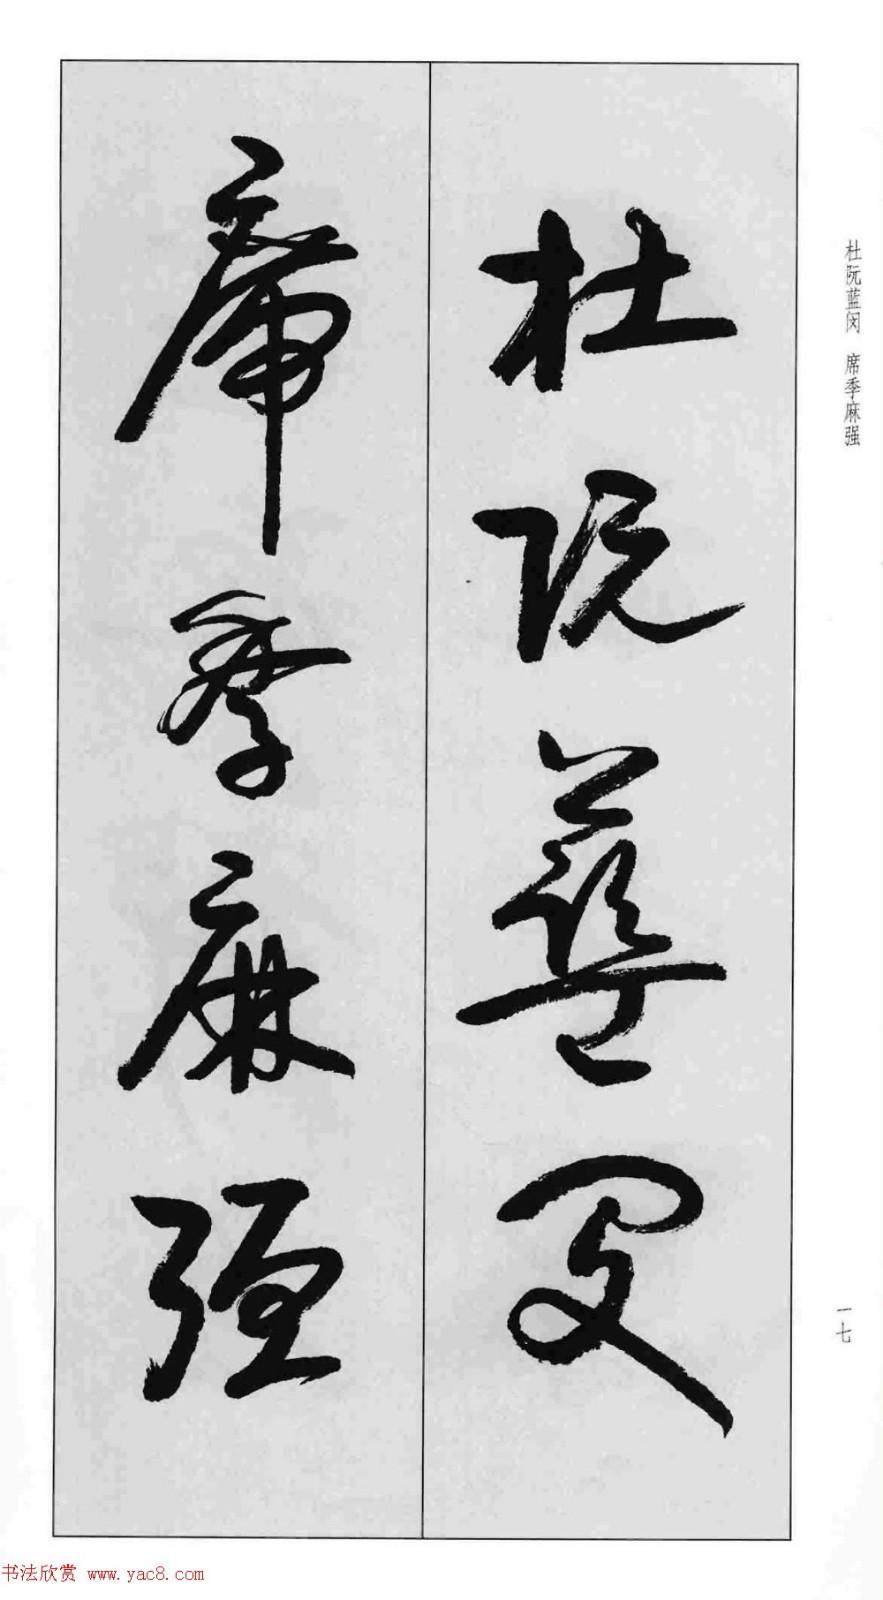 杜阮蓝闵 席季麻强
杜阮蓝闵
席季麻强
一七
书法欣赏 www.yac8.com